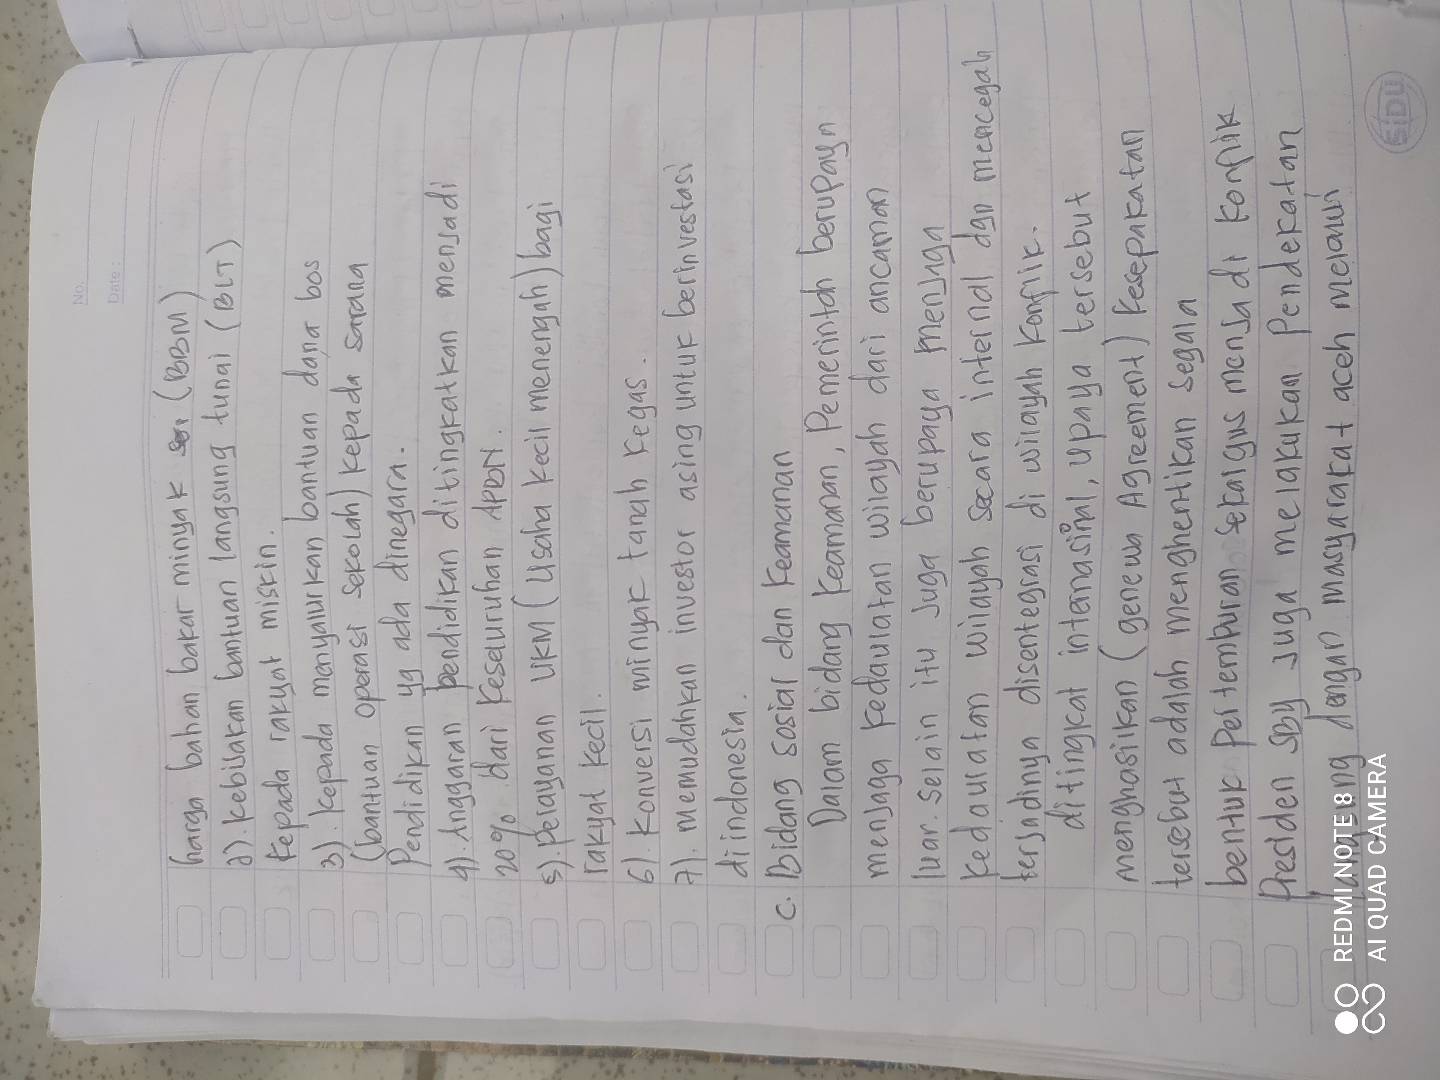 No.
Date :
harga bahan bakar minyak (BBM)
2). kebijakan bantuan langsung tunai (BLT)
kepada rakyat miskin.
3). kepada menyalurkan bantuan dana bos
(bantuan operasi sekolah) kepada sarana
Pendidikan yg ada dinegara.
4). Anggaran pendidikan ditingkatkan menjadi
20% dari keseluruhan APBN.
5). pelayanan UKM (Usaha kecil menengah) bagi
rakyat kecil.
6). Konversi minyak tanah kegas.
7). memudahkan investor asing untuk berinvestasi
di indonesia.
C. Bidang sosial dan keamanan
Dalam bidang keamanan, Pemerintah berupaya
menjaga kedaulatan wilayah dari ancaman
luar. Selain itu Juga berupaya menjaga
kedaulatan wilayah secara internal dan mencegah
terjadinya disentegrasi di wilayah konflik.
ditingkat internasional, upaya tersebut
menghasilkan (genewa Agreement) kesepakatan
tersebut adalah menghentikan segala
bentuk Pertempuran sekalgus menjadi konflik
Presiden SBY Juga melakukan Pendekatan
langsung dengan masyarakat aceh melalui
REDMI NOTE 8
AI QUAD CAMERA
SiDU